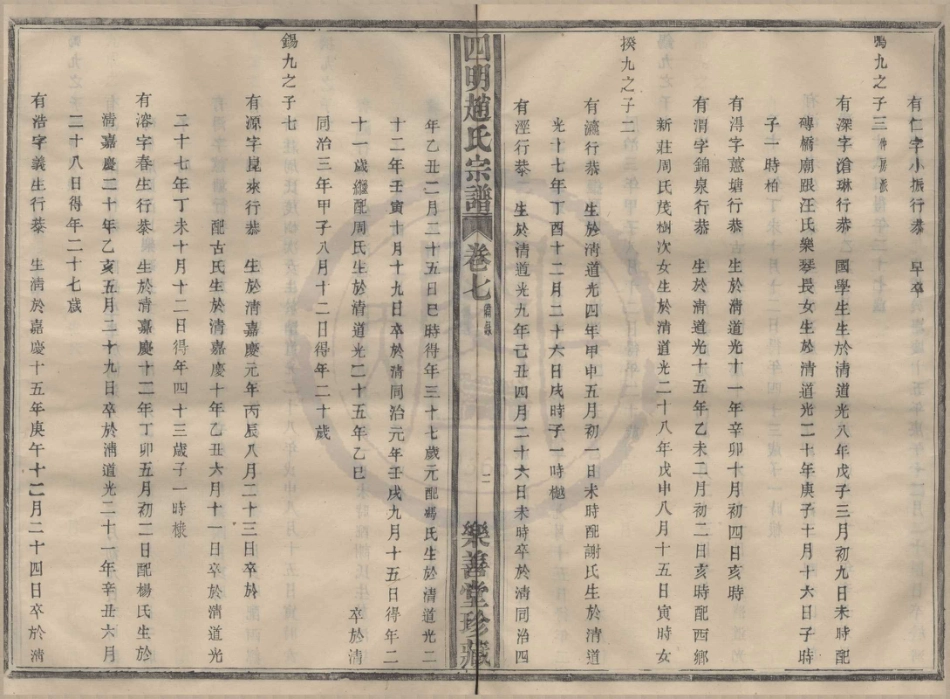 有仁字小振行恭　早卒
鳴九之子三
有深字滄琳行恭　國學生生於清道光八年戊子三月初九日未時配
磚橋廟跟汪氏樂琴長女生於清道光二十年庚子十月十六日子時
子一時柏
有淂字蕙塘行恭　生於清道光十一年辛卯十月初四日亥時
有渭字錦泉行恭　生於清道光十五年乙未二月初二日亥時配西鄉
新莊周氏茂樹次女生於清道光二十八年戊申八月十五日寅時女
揆九之子二
有灜行恭　生於清道光四年甲申五月初一日未時配謝氏生於清道
光十七年丁酉十二月二十六日戌時子一時樾
有溼行恭　生於清道光九年己丑四月二十六日未時卒於清同治四
四明趙氏宗譜　卷七　二二　樂善堂珍藏
年乙丑二月二十五日巳時得年三十七歲元配馮氏生於清道光二
十二年壬寅十月十九日卒於清同治元年壬戌九月十五日得年二
十一歲繼配周氏生於清道光二十五年乙巳　卒於清
同治三年甲子八月十二日得年二十歲
錫九之子七
有源字崑來行恭　生於清嘉慶元年丙辰八月二十三日卒於
清道光二十七年丁未十月十二日得年四十三歲子一時樣
有溶字春生行恭　生於清嘉慶十二年丁卯五月初二日配楊氏生於
清嘉慶二十年乙亥五月二十九日卒於清道光二十一年辛丑六月
二十八日得年二十七歲
有浩字義生行恭　生清於嘉慶十五年庚午十二月二十四日卒於清